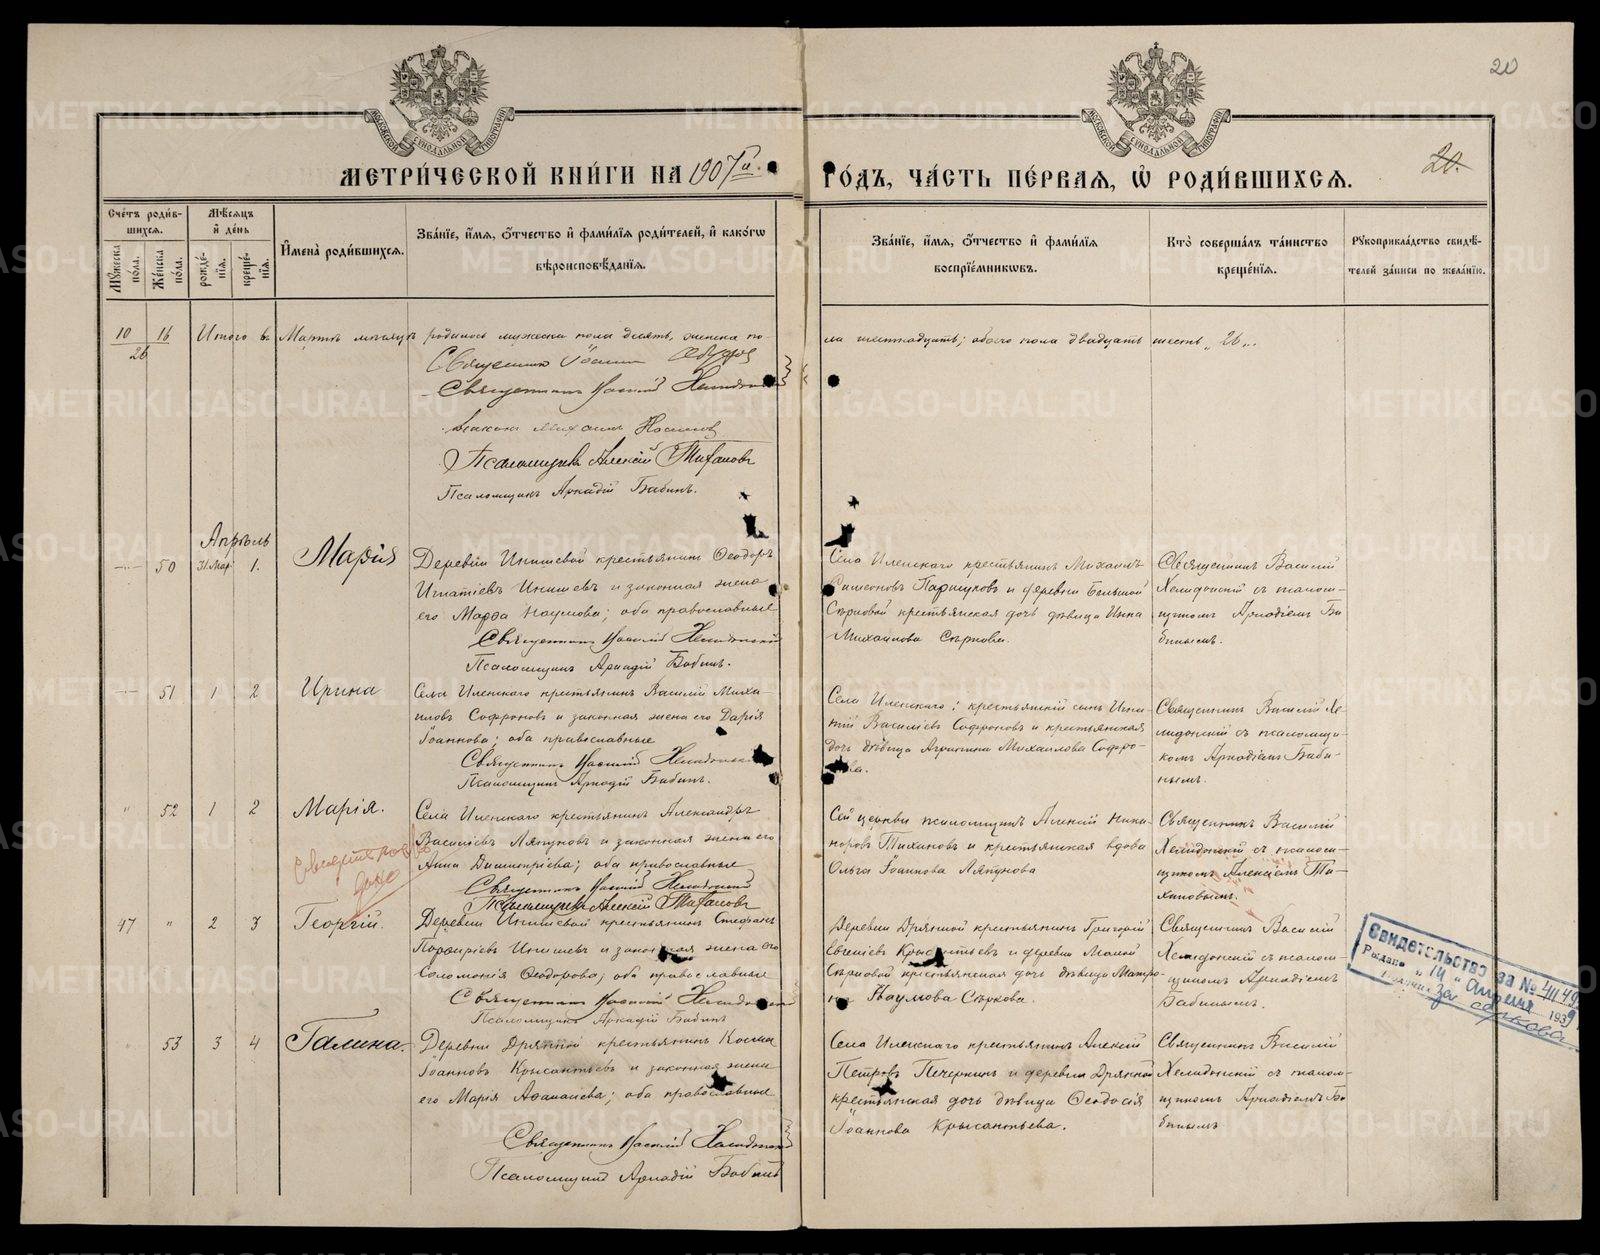 20
20.
МЕТРИ́ЧЕСКОЙ КНИ́ГИ НА 1907й. ГО́ДЪ, ЧА́СТЬ ПЕ́РВАѦ, Ѡ҆ РОДИ́ВШИХСѦ.
Сче́тъ роди́вшихсѧ.
Мꙋ́жеска по́ла.
Же́нска по́ла.
Мѣ́сѧцъ и҆ де́нь
рожде́нїѧ.
креще́нїѧ.
И҆мена̀ роди́вшихсѧ.
Зва́нїе, и҆́мѧ, ѻ҆́тчество и҆ фами́лїѧ роди́телей, и҆ како́гѡ
вѣроисповѣ́данїѧ.
Зва́нїе, и҆́мѧ, ѻ҆́тчество и҆ фами́лїѧ
воспрїе́мникѡвъ.
Кто̀ соверша́лъ та́инство
креще́нїѧ.
Рꙋкоприкла́дство свидѣ́-
телей за́писи по жела́нїю.
10 16 Итого въ Мартѣ мѣсяцѣ родилось мужеска пола десять, женска по-
ла шестнадцать; обоего пола двадцать шесть „26„.
26
Священникъ Іоаннъ
Священникъ Василій Хелидонскій
Діаконъ Михаилъ Носиловъ
Псаломщикъ Алексій Тихановъ
Псаломщикъ Аркадій Бабинъ.
Апрѣль
50 31 Мар. 1. Марія
Деревни Инишевой крестьянинъ Ѳеодоръ
Игнатіевъ Инишевъ и законная жена
его Марѳа Наумова; оба православные
Священникъ Василій Хелидонскій
Псаломщикъ Аркадій Бабинъ.
Села Иленскаго крестьянинъ Михаилъ
Симеоновъ Паршуковъ и деревни Большой
Сѣрковой крестьянская дочь дѣвица Анна
Михаилова Сѣркова.
Священникъ Василій
Хелидонскій съ псалом-
щикомъ Аркадіемъ Ба-
бинымъ.
51 1 2 Ирина
Села Иленскаго крестьянинъ Василій Миха-
иловъ Софроновъ и законная жена его Дарія
Іоаннова; оба православные
Священникъ Василій Хелидонскій
Псаломщикъ Аркадій Бабинъ.
Села Иленскаго: крестьянскій сынъ Игна-
тій Василіевъ Софроновъ и крестьянская
дочь дѣвица Агрипина Михаилова Софро-
нова.
Священникъ Василій Хе-
лидонскій съ псаломщи-
комъ Аркадіемъ Баби-
нымъ.
" 52 1 2 Марія.
Села Иленскаго крестьянинъ Александръ
Василіевъ Ляпуновъ и законная жена его
Анна Димитріева; оба православные
Священникъ Василій Хелидонскій
Псаломщикъ Алексій Тихановъ
Сей церкви псаломщикъ Алексій Ника-
норовъ Тихановъ и крестьянская вдова
Ольга Іоаннова Ляпунова
Священникъ Василій
Хелидонскій съ псалом-
щикомъ Алексіемъ Ти-
хановымъ.
47 " 2 3 Георгій.
Деревни Инишевой крестьянинъ Стефанъ
Порфиріевъ Инишевъ и законная жена его
Соломонія Ѳеодорова; оба православные
Священникъ Василій Хелидонскій
Псаломщикъ Аркадій Бабинъ
Деревни Дрянной крестьянинъ Григорій
Евсиіевъ Крысантьевъ и деревни Малой
Сѣрковой крестьянская дочь дѣвица Матро-
на Наумова Сѣркова.
Священникъ Василій
Хелидонскій съ псалом-
щикомъ Аркадіемъ
Бабинымъ.
Свидетельство за №
Выдано „14„ апреля 1939
53 3 4 Галина.
Деревни Дрянной крестьянинъ Косма
Іоанновъ Крысантьевъ и законная жена
его Марія Аѳанасіева; оба православные
Священникъ Василій Хелидонскій
Псаломщикъ Аркадій Бабинъ
Села Иленскаго крестьянинъ Алексій
Петровъ Печеркинъ и деревни Дрянной
крестьянская дочь дѣвица Ѳеодосія
Іоаннова Крысантьева.
Священникъ Василій
Хелидонскій съ псалом-
щикомъ Аркадіемъ Ба-
бинымъ
METRIKI.GASO-URAL.RU